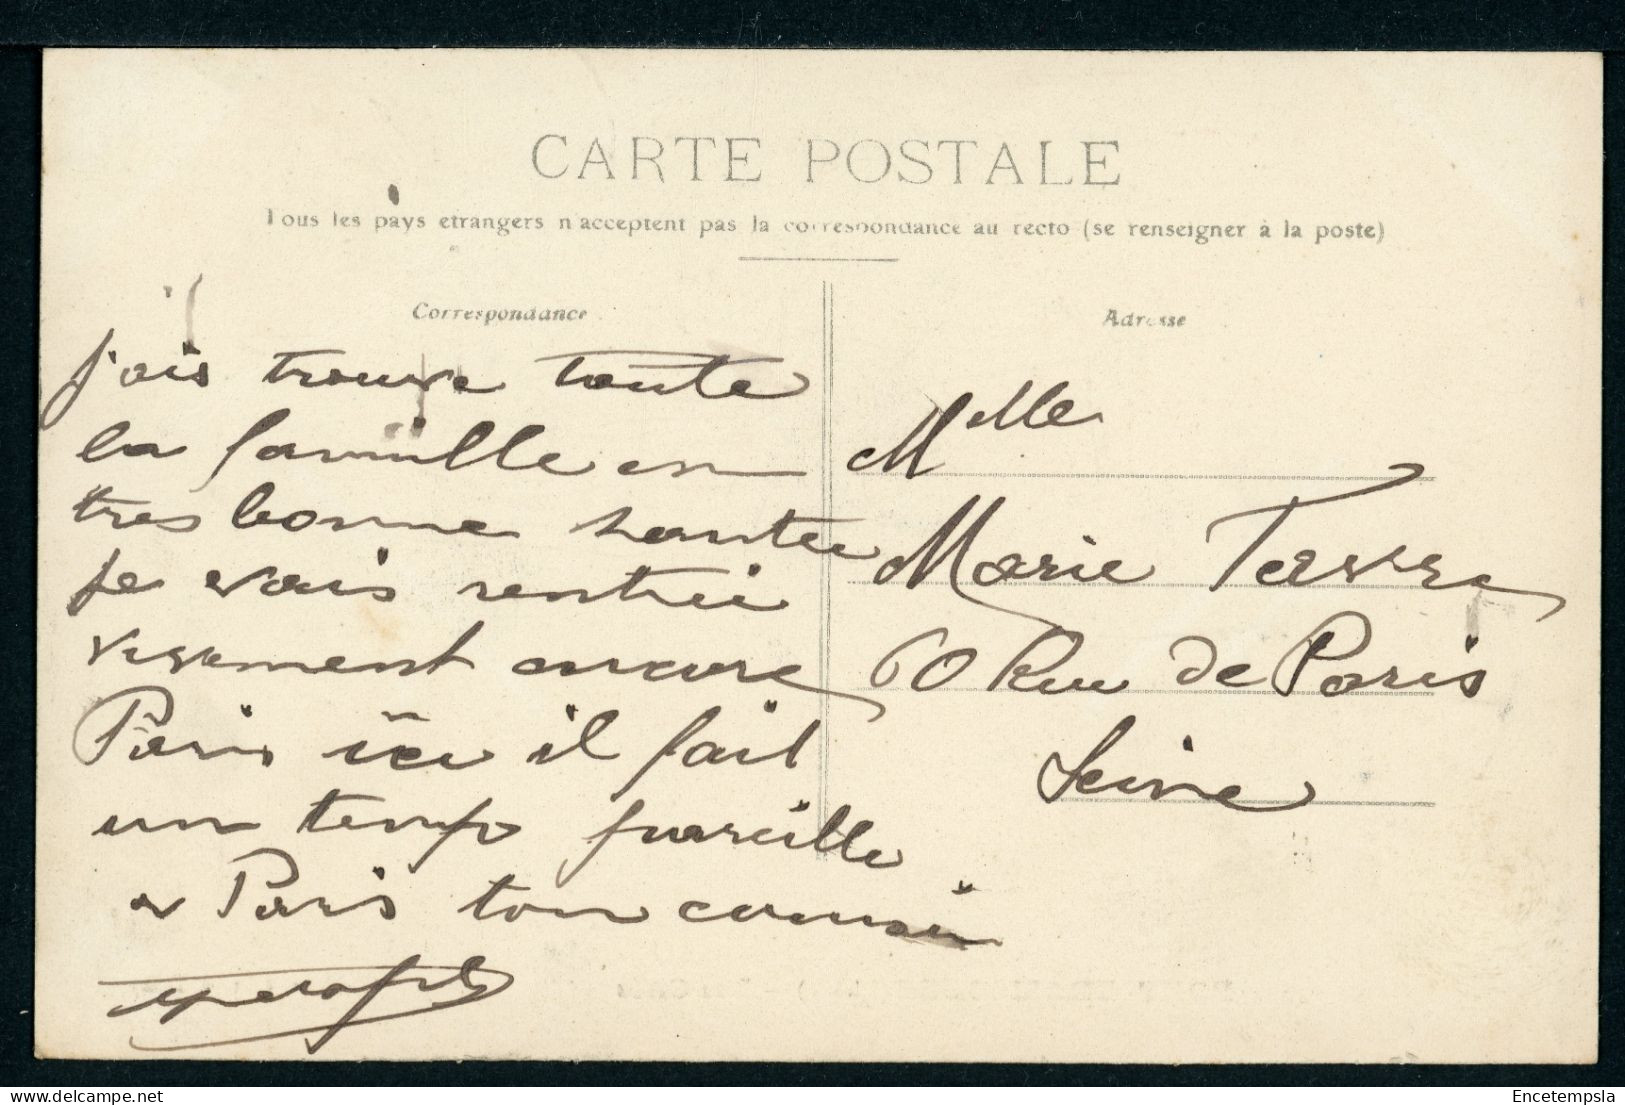 CARTE POSTALE
Tous les pays etrangers n'acceptent pas la correspondance au recto (se renseigner à la poste)
Correspondance
j'ais trouve toute
la famille en
tres bonne santee
je vais rentrii
visement encore
Paris ici il fait
un temp pareille
a Paris ton cousin
Adresse
Melle
Marie
60 Rue de Paris
Seine
Encetempsla